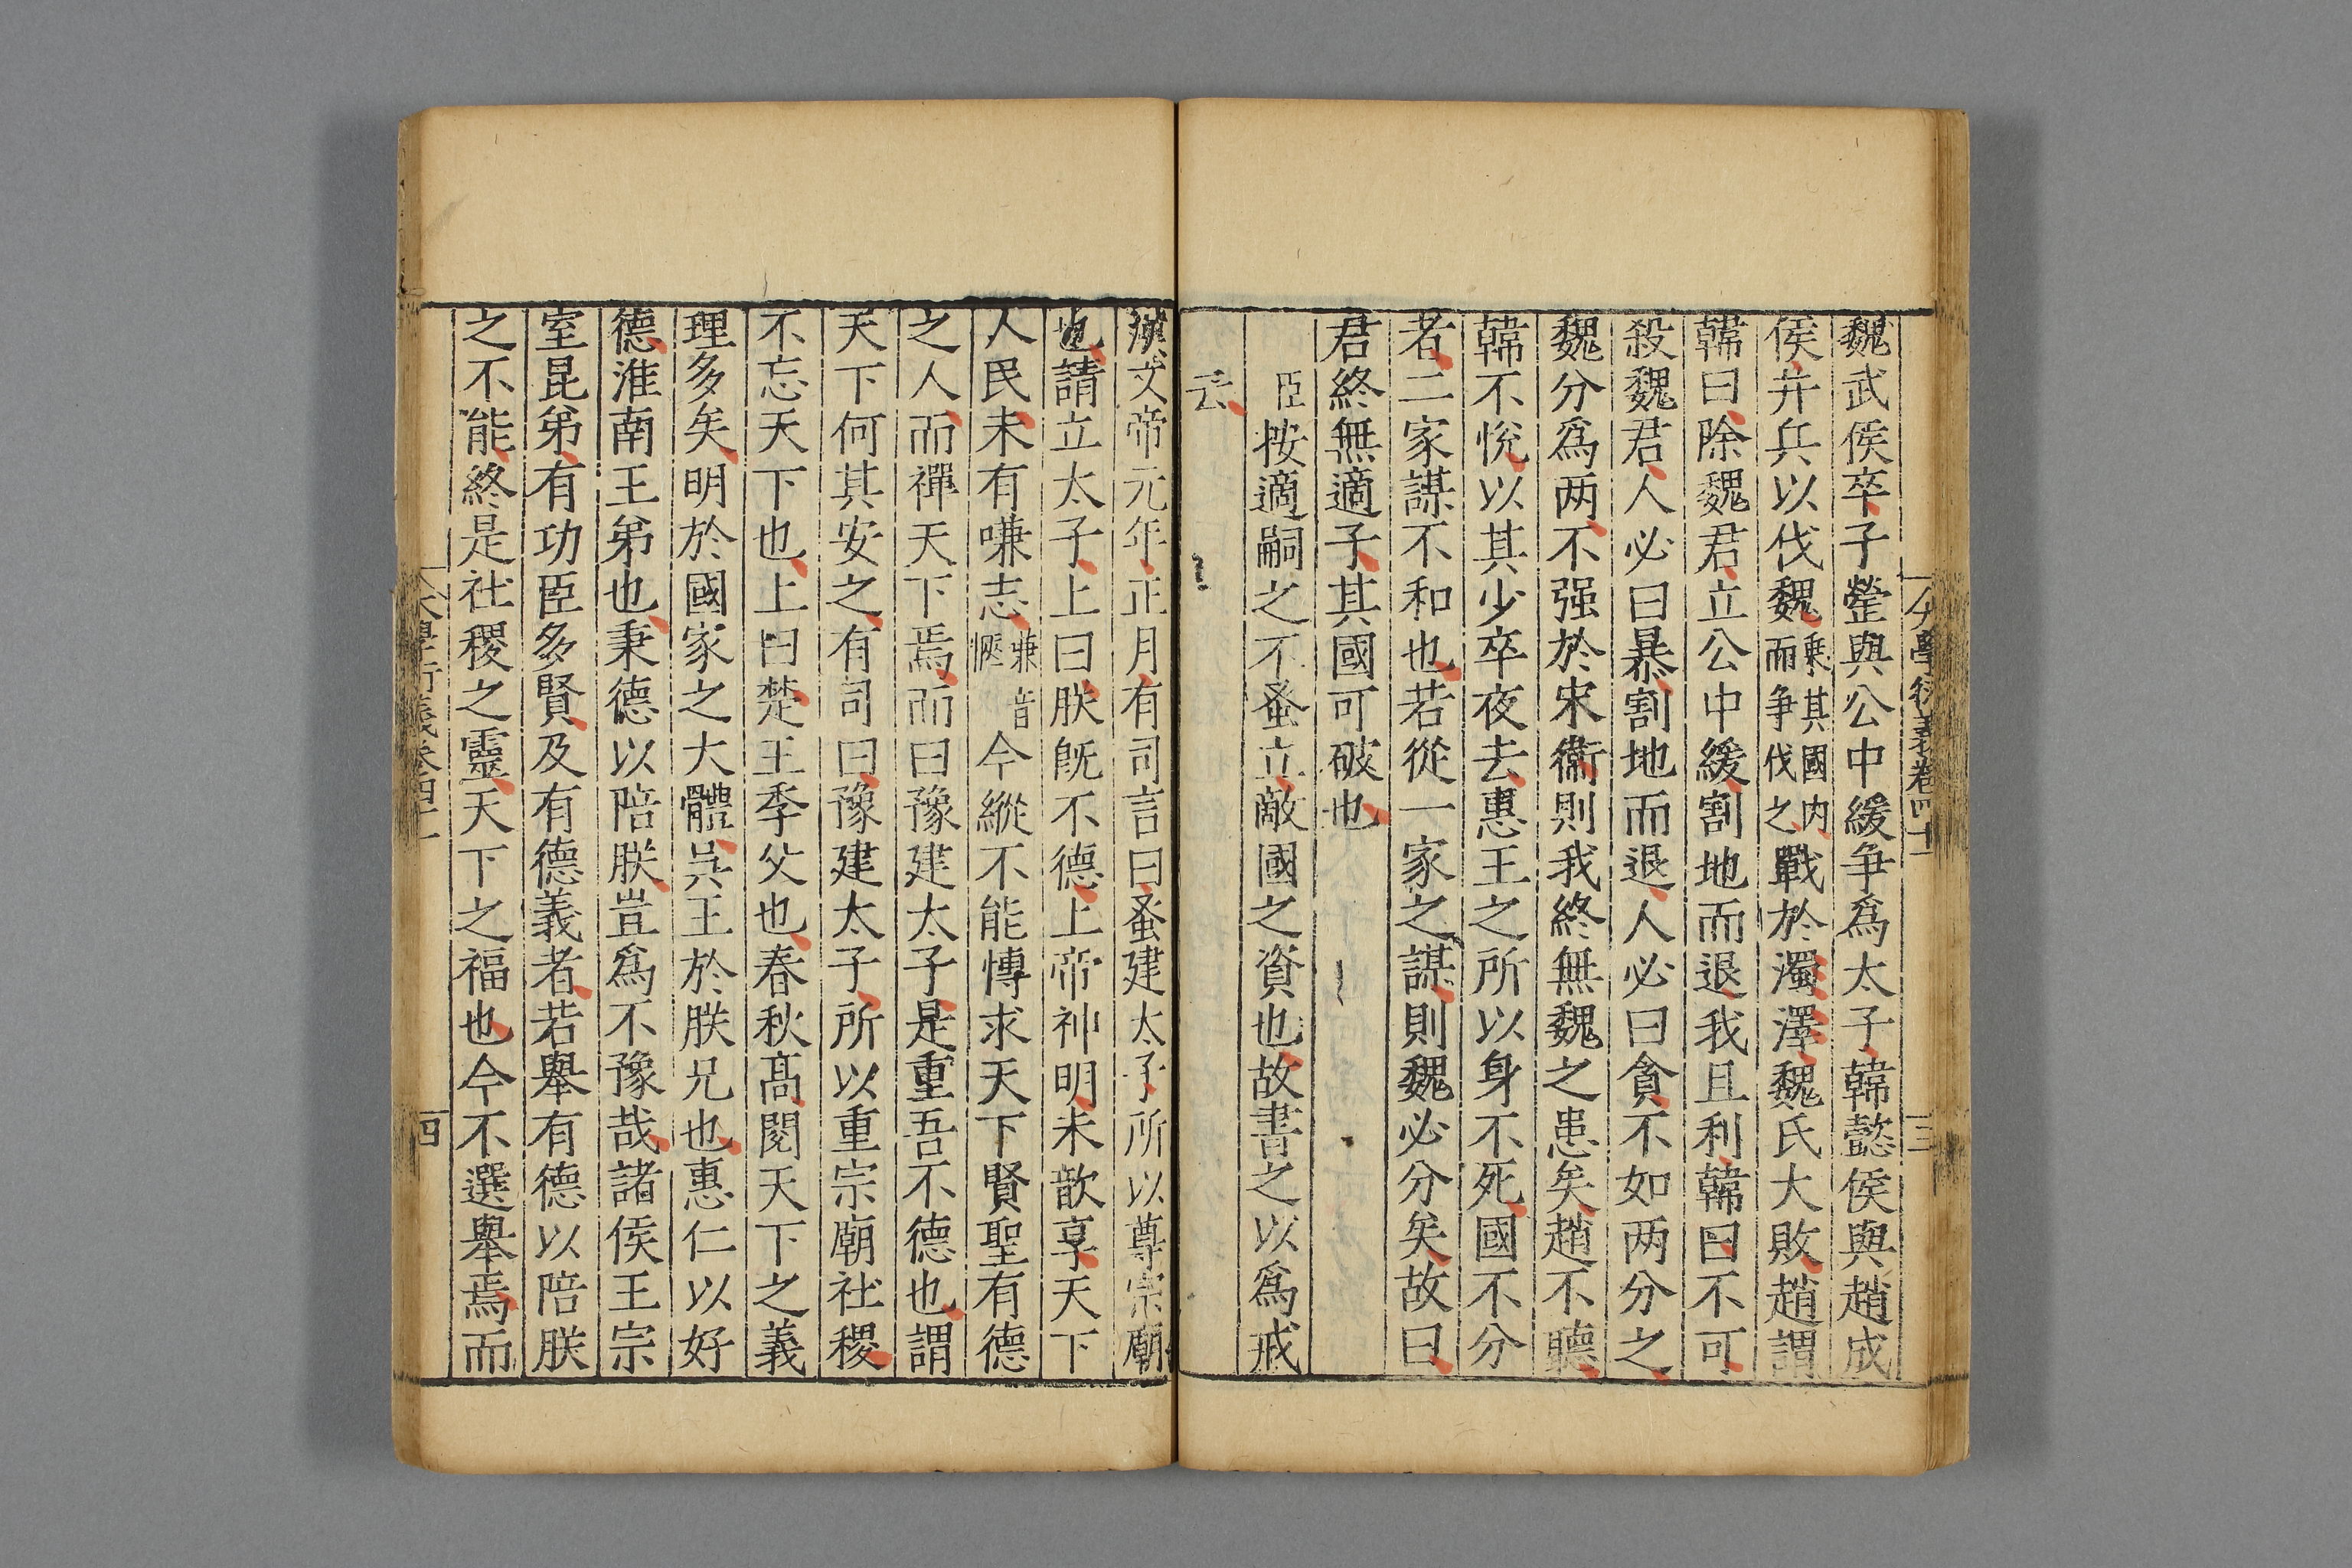 大學衍義卷四十一
三
魏武侯卒子罃與公中緩爭爲太子韓懿侯與趙成
侯并兵以伐魏乘其國内而爭伐之戰於濁澤魏氏大敗趙謂
韓曰除魏君立公中緩割地而退我且利韓曰不可
殺魏君人必曰暴割地而退人必曰貪不如两分之
魏分爲两不强於宋衞則我終無魏之患矣趙不聽
韓不悅以其少卒夜去惠王之所以身不死國不分
者二家謀不和也若從一家之謀則魏必分矣故曰
君終無適子其國可破也
臣按適嗣之不蚤立敵國之資也故書之以爲戒
云
漢文帝元年正月有司言曰蚤建太子所以尊宗廟
也請立太子上曰朕旣不德上帝神明未歆享天下
人民未有嗛志嗛音愜今縱不能慱求天下賢聖有德
之人而禪天下焉而曰豫建太子是重吾不德也謂
天下何其安之有司曰豫建太子所以重宗廟社稷
不忘天下也上曰楚王季父也春秋髙閱天下之義
理多矣明於國家之大體呉王於朕兄也惠仁以好
德淮南王弟也秉德以陪朕豈爲不豫哉諸侯王宗
室昆弟有功臣多賢及有德義者若舉有德以陪朕
之不能終是社稷之靈天下之福也今不選舉焉而
大學衍義卷四十一
四